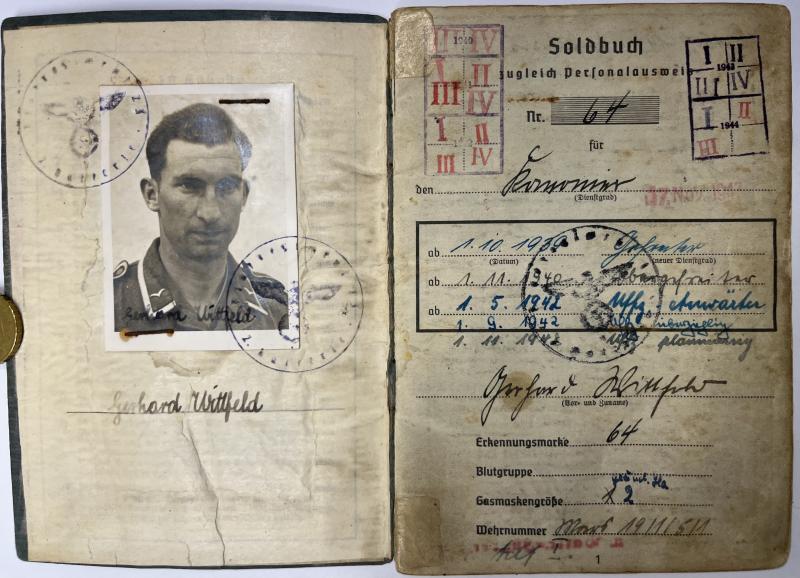 Gerhard Wittfeld
Gerhard Wittfeld
Soldbuch
zugleich Personalausweis
Nr. 64
für
den Kanonier
(Dienstgrad)
ab 1.10.1939 Gefreiter
(Datum) (neuer Dienstgrad)
ab 1.11.1940 Obergefreiter
ab 1.5.1942 Uffz.-Anwärter
1.9.1942 Uffz. überzählig
1.11.1942 Uffz. planmäßig
Gerhard Wittfeld
(Vor- und Zuname)
Erkennungsmarke 64
Blutgruppe
Gasmaskengröße 2
Wehrnummer Mörs 19/11/5/1
1
1940
III IV
I II
III IV
I II
III IV
I II
1943
III IV
I II
1944
III